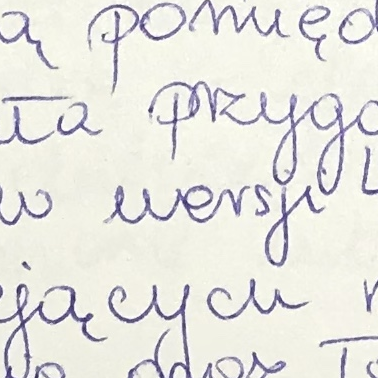 ą pomięd
ta przygo
w wersji
jących